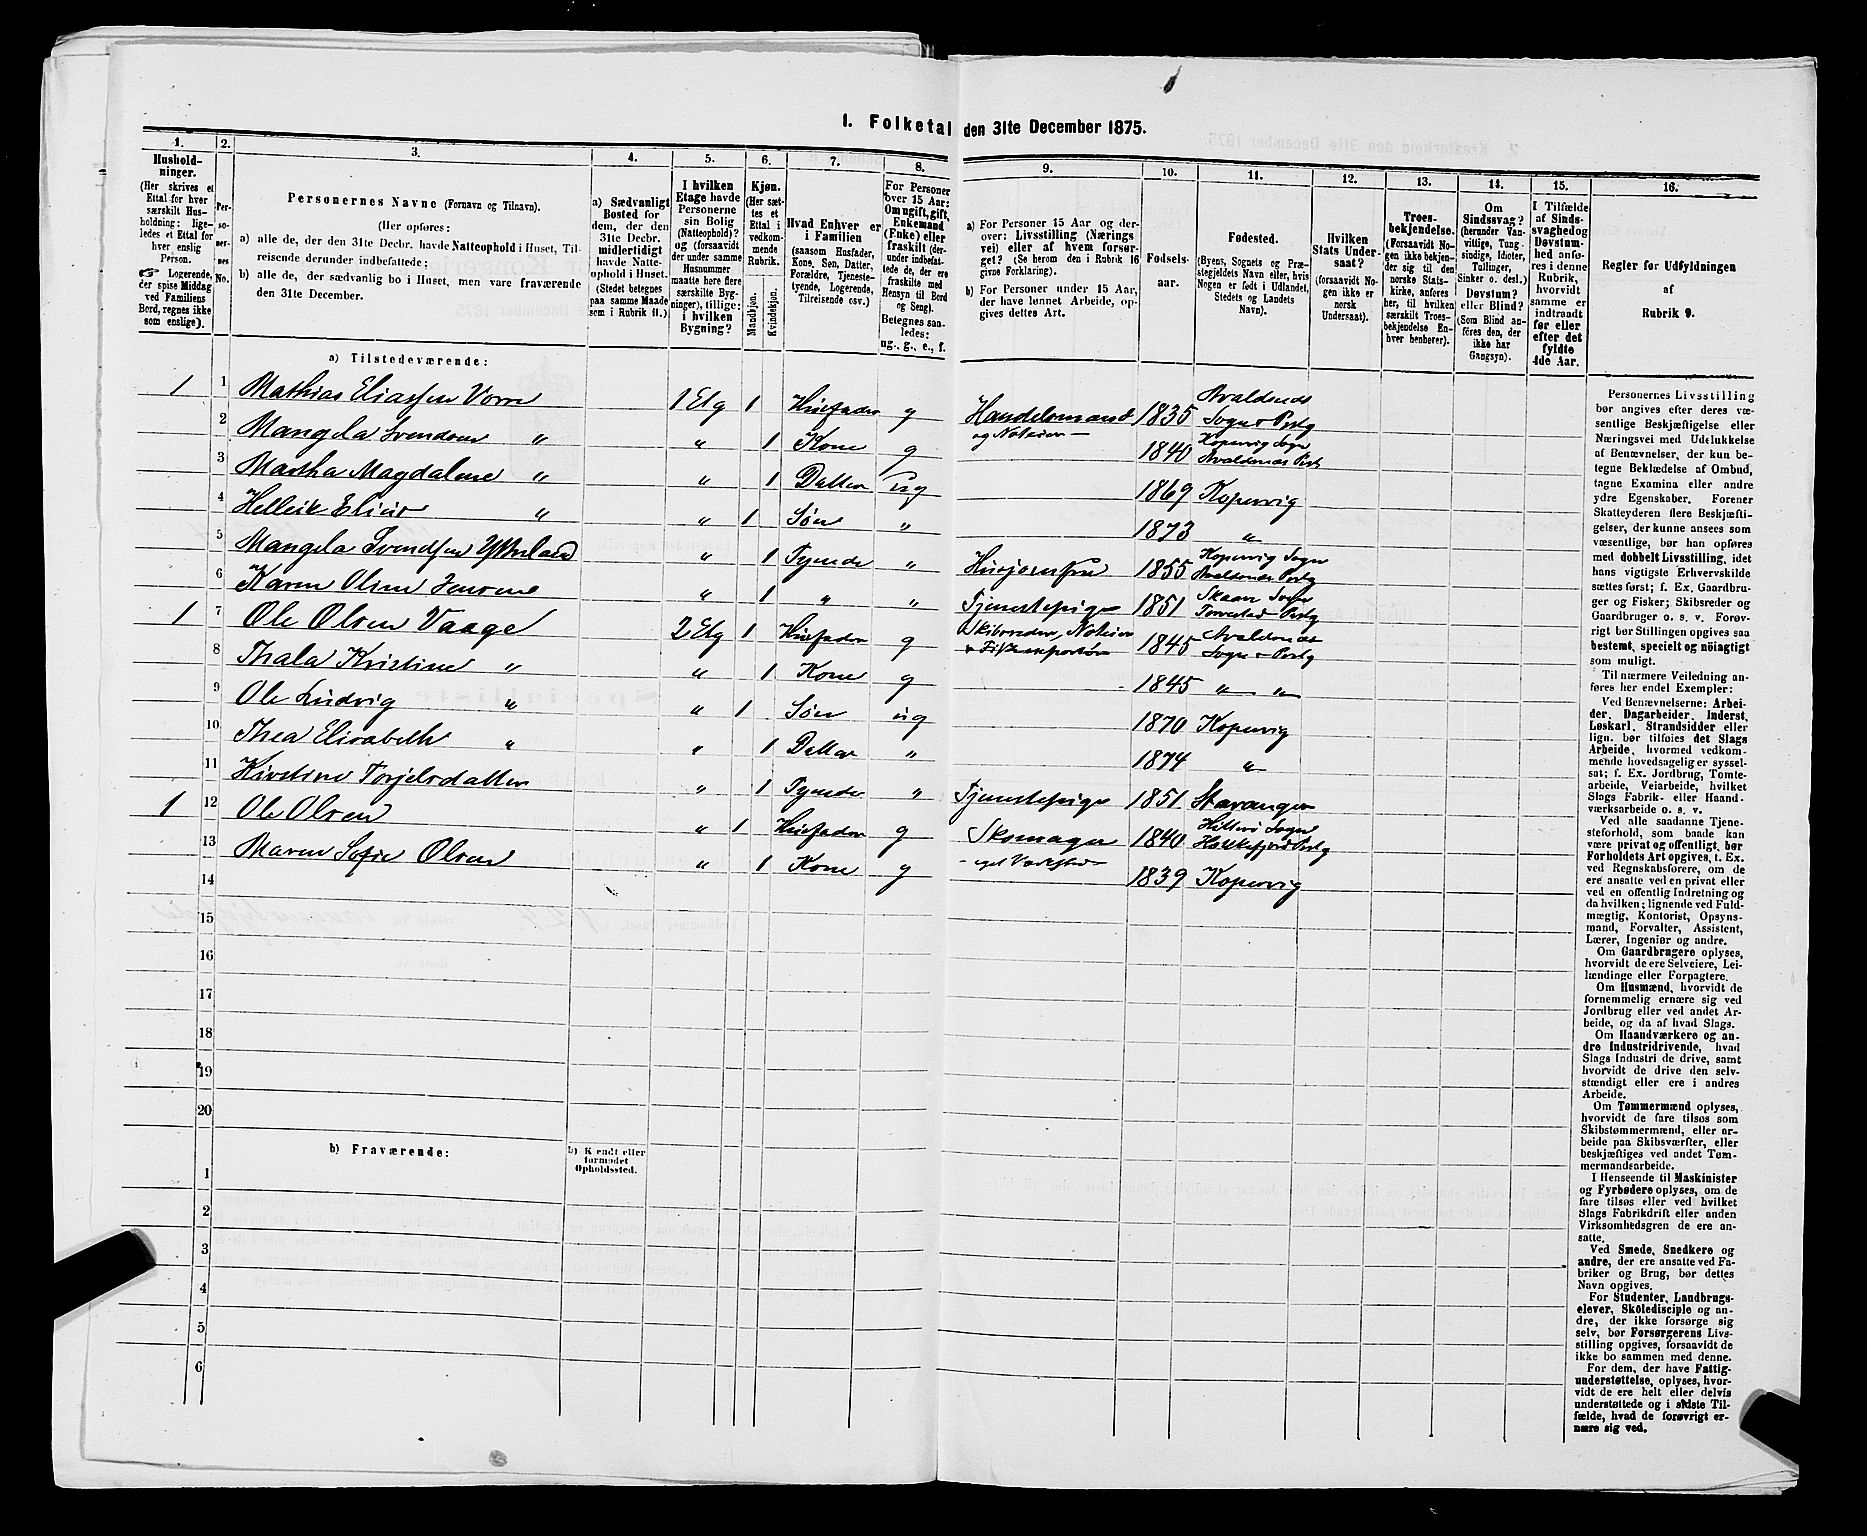 1. Folketal den 31te December 1875.
1.
Hushold-
ninger.
(Her skrives et
Ettal for hver
særskilt Hus-
holdning; lige-
ledes et Ettal for
hver enslig
Person.
☞ Logerende,
der spise Middag
ved Familiens
Bord, regnes ikke
som enslige).
2.
Per-
so-
ner-
nes
No.
3.
Personernes Navne (Fornavn og Tilnavn).
(Her opføres:
a) alle de, der den 31te Decbr. havde Natteophold i Huset, Til-
reisende derunder indbefattede;
b) alle de, der sædvanlig bo i Huset, men vare fraværende
den 31te December.
4.
a) Sædvanligt
Bosted for
dem, der den
31te Decbr.
midlertidigt
havde Natte-
ophold i Huset.
(Stedet betegnes
paa samme Maade
som i Rubrik 11.)
5.
I hvilken
Etage havde
Personerne
sin Bolig
(Natteophold)?
og (forsaavidt
der under samme
Husnummer
maatte høre flere
særskilte Byg-
ninger), tillige:
i hvilken
Bygning?
6.
Kjøn.
(Her sæt-
tes et
Ettal i
vedkom-
mende
Rubrik.
Mandkjøn.
Kvindekjøn.
7.
Hvad Enhver er
i Familien
(saasom Husfader,
Kone, Søn, Datter,
Forældre, Tjeneste-
tyende, Logerende,
Tilreisende osv.)
8.
For Personer
over 15 Aar:
Om ugift, gift,
Enkemand
(Enke) eller
fraskilt (der-
under indbefat-
tede de, der ere
fraskilte med
Hensyn til Bord
og Seng).
Betegnes saa-
ledes:
ug., g., e., f.
9.
a) For Personer 15 Aar og der-
over: Livsstilling (Nærings-
vei) eller af hvem forsør-
get? (Se herom den i Rubrik 16
givne Forklaring).
b) For Personer under 15 Aar,
der have lønnet Arbeide, op-
gives dettes Art.
10.
Fødsels-
aar.
11.
Fødested.
(Byens, Sognets og Præ-
stegjeldets Navn eller, hvis
Nogen er født i Udlandet,
Stedets og Landets
Navn).
12.
Hvilken
Stats Under-
saat?
(forsaavidt No-
gen ikke er
norsk
Undersaat).
13.
Troes-
bekjendelse.
(Forsaavidt No-
gen ikke bekjen-
der sig til den
norske Stats-
kirke, anføres
her, til hvilken
særskilt Troes-
bekjendelse En-
hver henhører).
14.
Om
Sindssvag?
(herunder Van-
vittige, Tung-
sindige, Idioter,
Tullinger,
Sinker o. desl.)
Døvstum?
eller Blind?
(Som Blind an-
føres den, der
ikke har
Gangsyn).
15.
I Tilfælde
af Sinds-
svaghed og
Døvstum-
hed anfø-
res i denne
Rubrik,
hvorvidt
samme er
indtraadt
før eller
efter det
fyldte
4de Aar.
16.
Regler for Udfyldningen
af
Rubrik 9.
a) Tilstedeværende:
1 1 Mathias Eliassen Vorre 1 Etg 1 Husfader g Handelsmand og Noteier 1835 Avaldsnæs Sogn & Prstg
2 Mangela Svendsen " " 1 Kone g 1840 Kopervig Sogn Avaldsnæs Prstg
3 Martha Magdalene " " 1 Datter ug 1869 Kopervig
4 Helleik Elias " " 1 Søn " 1873 "
5 Mangela Svendsen " 1 Tyende " Husjomfru 1855 Kopervig Sogn Avaldsnæs Prstg
6 Karen Olsen " 1 " " Tjenestepige 1851 Skaare Sogn Torvestad Prstg
1 7 Ole Olsen Vaage 2 Etg 1 Husfader g Skibsreder, Noteier & Fiskexportør 1845 Avaldsnæs Sogn & Prstg
8 Thala Kristine " " 1 Kone g 1845 " "
9 Ole Ludvig " " 1 Søn ug 1870 Kopervig
10 Thea Elisabeth " " 1 Datter " 1874 "
11 Kirstine Torjelsdatter " 1 Tyende " Tjenestepige 1851 Stavanger
1 12 Ole Olsen " 1 Husfader g Skomager 1840 Hitterø Sogn Prstg
13 Maren Sofie Olsen " 1 Kone g eget Værksted 1839 Kopervig
14
15
16
17
18
19
20
b) Fraværende:
b) Kjendt eller
formodet
Opholdssted.
1
2
3
4
5
6
Personernes Livsstilling
bør angives efter deres væ-
sentlige Beskjæftigelse eller
Næringsvei med Udelukkelse
af Benævnelser, der kun be-
tegne Beklædelse af Ombud,
tagne Examina eller andre
ydre Egenskaber. Forener
Skatteyderen flere Beskjæfti-
gelser, der kunne ansees som
væsentlige, bør han opføres
med dobbelt Livsstilling, idet
hans vigtigste Erhvervskilde
sættes først; f. Ex. Gaardbru-
ger og Fisker; Skibsreder og
Gaardbruger o. s. v. Forøv-
rigt bør Stillingen opgives saa
bestemt, specielt og nöiagtigt
som muligt.
Til nærmere Veiledning an-
føres her endel Exempler:
Ved Benævnelserne: Arbei-
der, Dagarbeider, Inderst,
Løskarl, Strandsidder eller
lign. bør tilføies det Slags
Arbeide, hvormed vedkom-
mende hovedsagelig er syssel-
sat; f. Ex. Jordbrug, Tomte-
arbeide, Veiarbeide, hvilket
Slags Fabrik- eller Haand-
værksarbeide o. s. v.
Ved alle saadanne Tjene-
steforhold, som baade kan
være privat og offentligt, bør
Forholdets Art opgives, t. Ex.
ved Regnskabsførere, om de
ere ansatte ved en privat eller
ved en offentlig Indretning og
da hvilken; lignende ved Fuld-
mægtig, Kontorist, Opsyns-
mand, Forvalter, Assistent,
Lærer, Ingeniør og andre.
Om Gaardbrugere oplyses,
hvorvidt de ere Selveiere, Lei-
lændinge eller Forpagtere.
Om Husmænd, hvorvidt de
fornemmelig ernære sig ved
Jordbrug eller ved andet Ar-
beide, og da af hvad Slags.
Om Haandværkere og an-
dre Industridrivende, hvad
Slags Industri de drive, samt
hvorvidt de drive den selv-
stændigt eller ere i andres
Arbeide.
Om Tømmermænd oplyses,
hvorvidt de fare tilsøs som
Skibstømmermænd, eller ar-
beide paa Skibsværfter, eller
beskjæftiges ved andet Tøm-
mermandsarbeide.
I Henseende til Maskinister
og Fyrbødere oplyses, om de
fare tilsøs eller ved hvilket
Slags Fabrikdrift eller anden
Virksomhedsgren de ere an-
satte.
Ved Smede, Snedkere og
andre, der ere ansatte ved Fa-
briker og Brug, bør dettes
Navn opgives.
For Studenter, Landbrugs-
elever, Skoledisciple og an-
dre, der ikke forsørge sig
selv, bør Forsørgerens Livs-
stilling opgives, forsaavidt de
ikke bo sammen med denne.
For dem, der have Fattig-
understøttelse, oplyses, hvor-
vidt de ere helt eller delvis
understøttede og i sidste Til-
fælde, hvad de forøvrigt er-
nære sig ved.